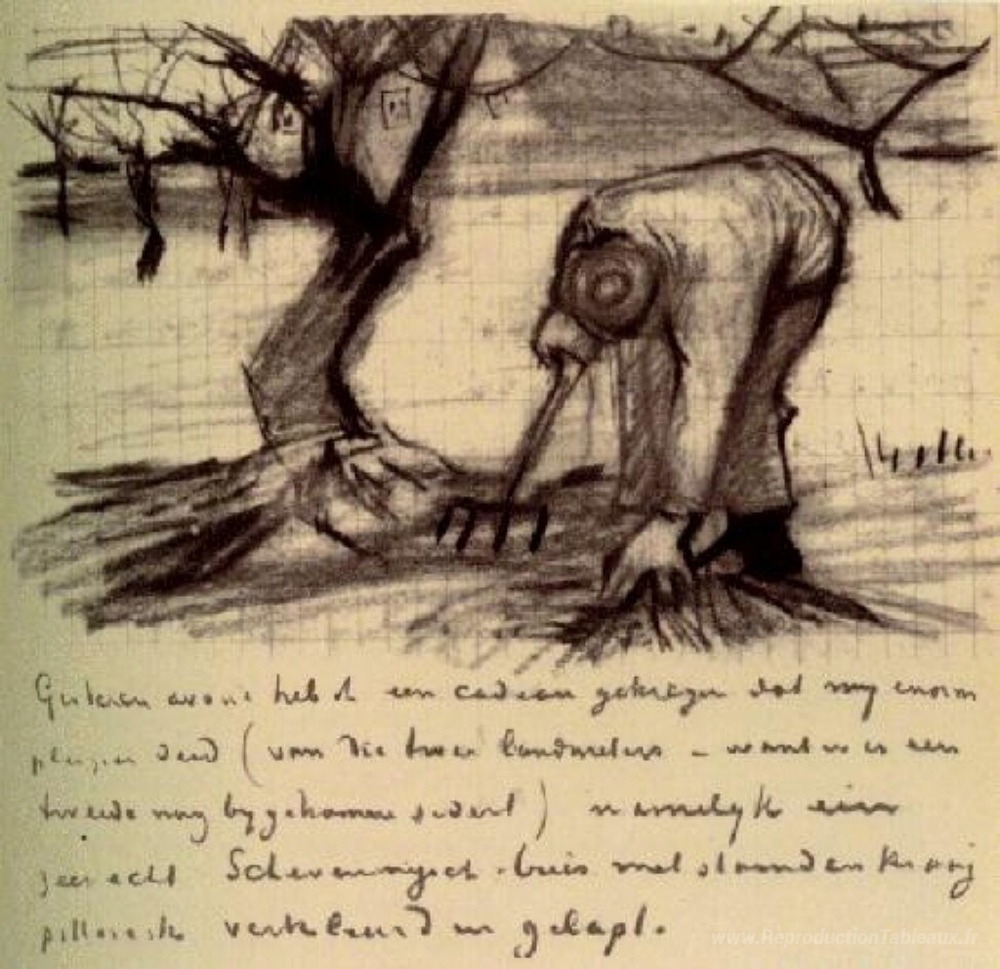 Gisteren avond heb ik een cadeau gekregen dat my enorm
plezier deed (van die twee landmeters – want er is een
tweede nog bygekomen sedert) namelyk een
zeer echt Scheveningsch buis met staanden kraag
pittoresk verkleurd en gelapt.
www.ReproductionTableaux.fr